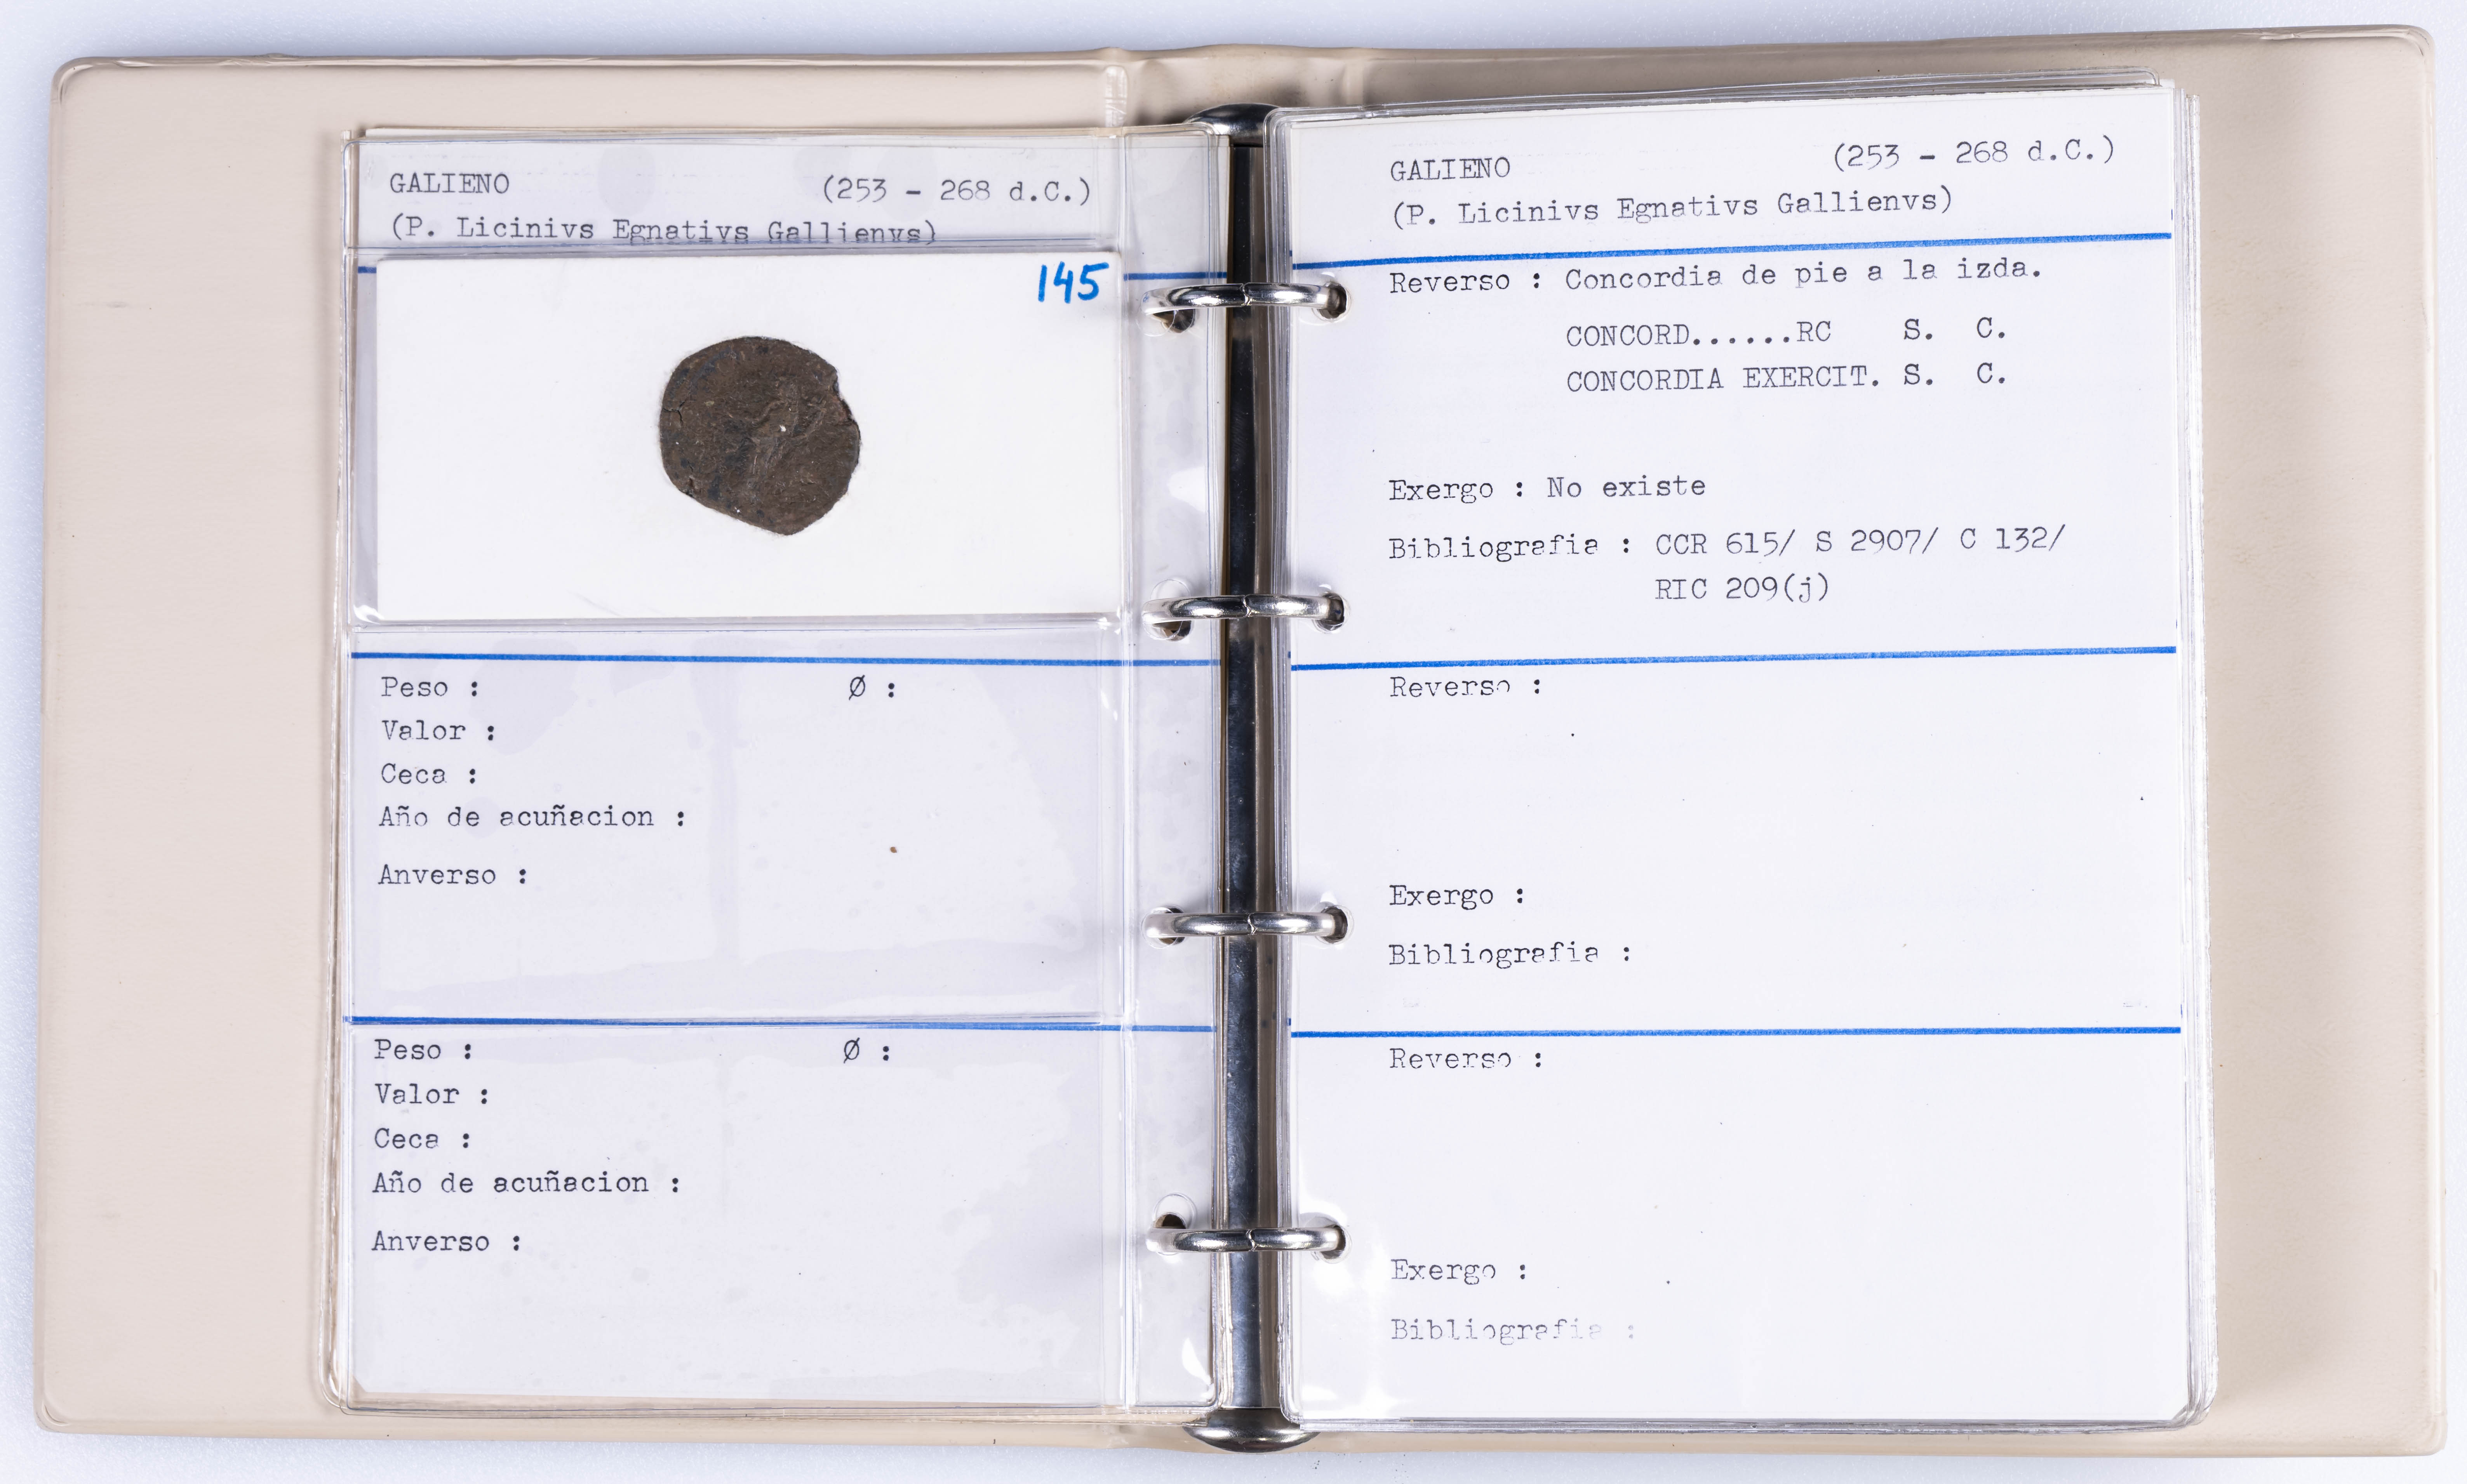 GALIENO (253 - 268 d.C.)
(P. Licinivs Egnativs Gallienvs)
145
Peso : Ø :
Valor :
Ceca :
Año de acuñacion :
Anverso :
Peso : Ø :
Valor :
Ceca :
Año de acuñacion :
Anverso :
GALIENO (253 - 268 d.C.)
(P. Licinivs Egnativs Gallienvs)
Reverso : Concordia de pie a la izda.
CONCORD......RC S. C.
CONCORDIA EXERCIT. S. C.
Exergo : No existe
Bibliografia : CCR 615/ S 2907/ C 132/
RIC 209(j)
Reverso :
Exergo :
Bibliografia :
Reverso :
Exergo :
Bibliografia :